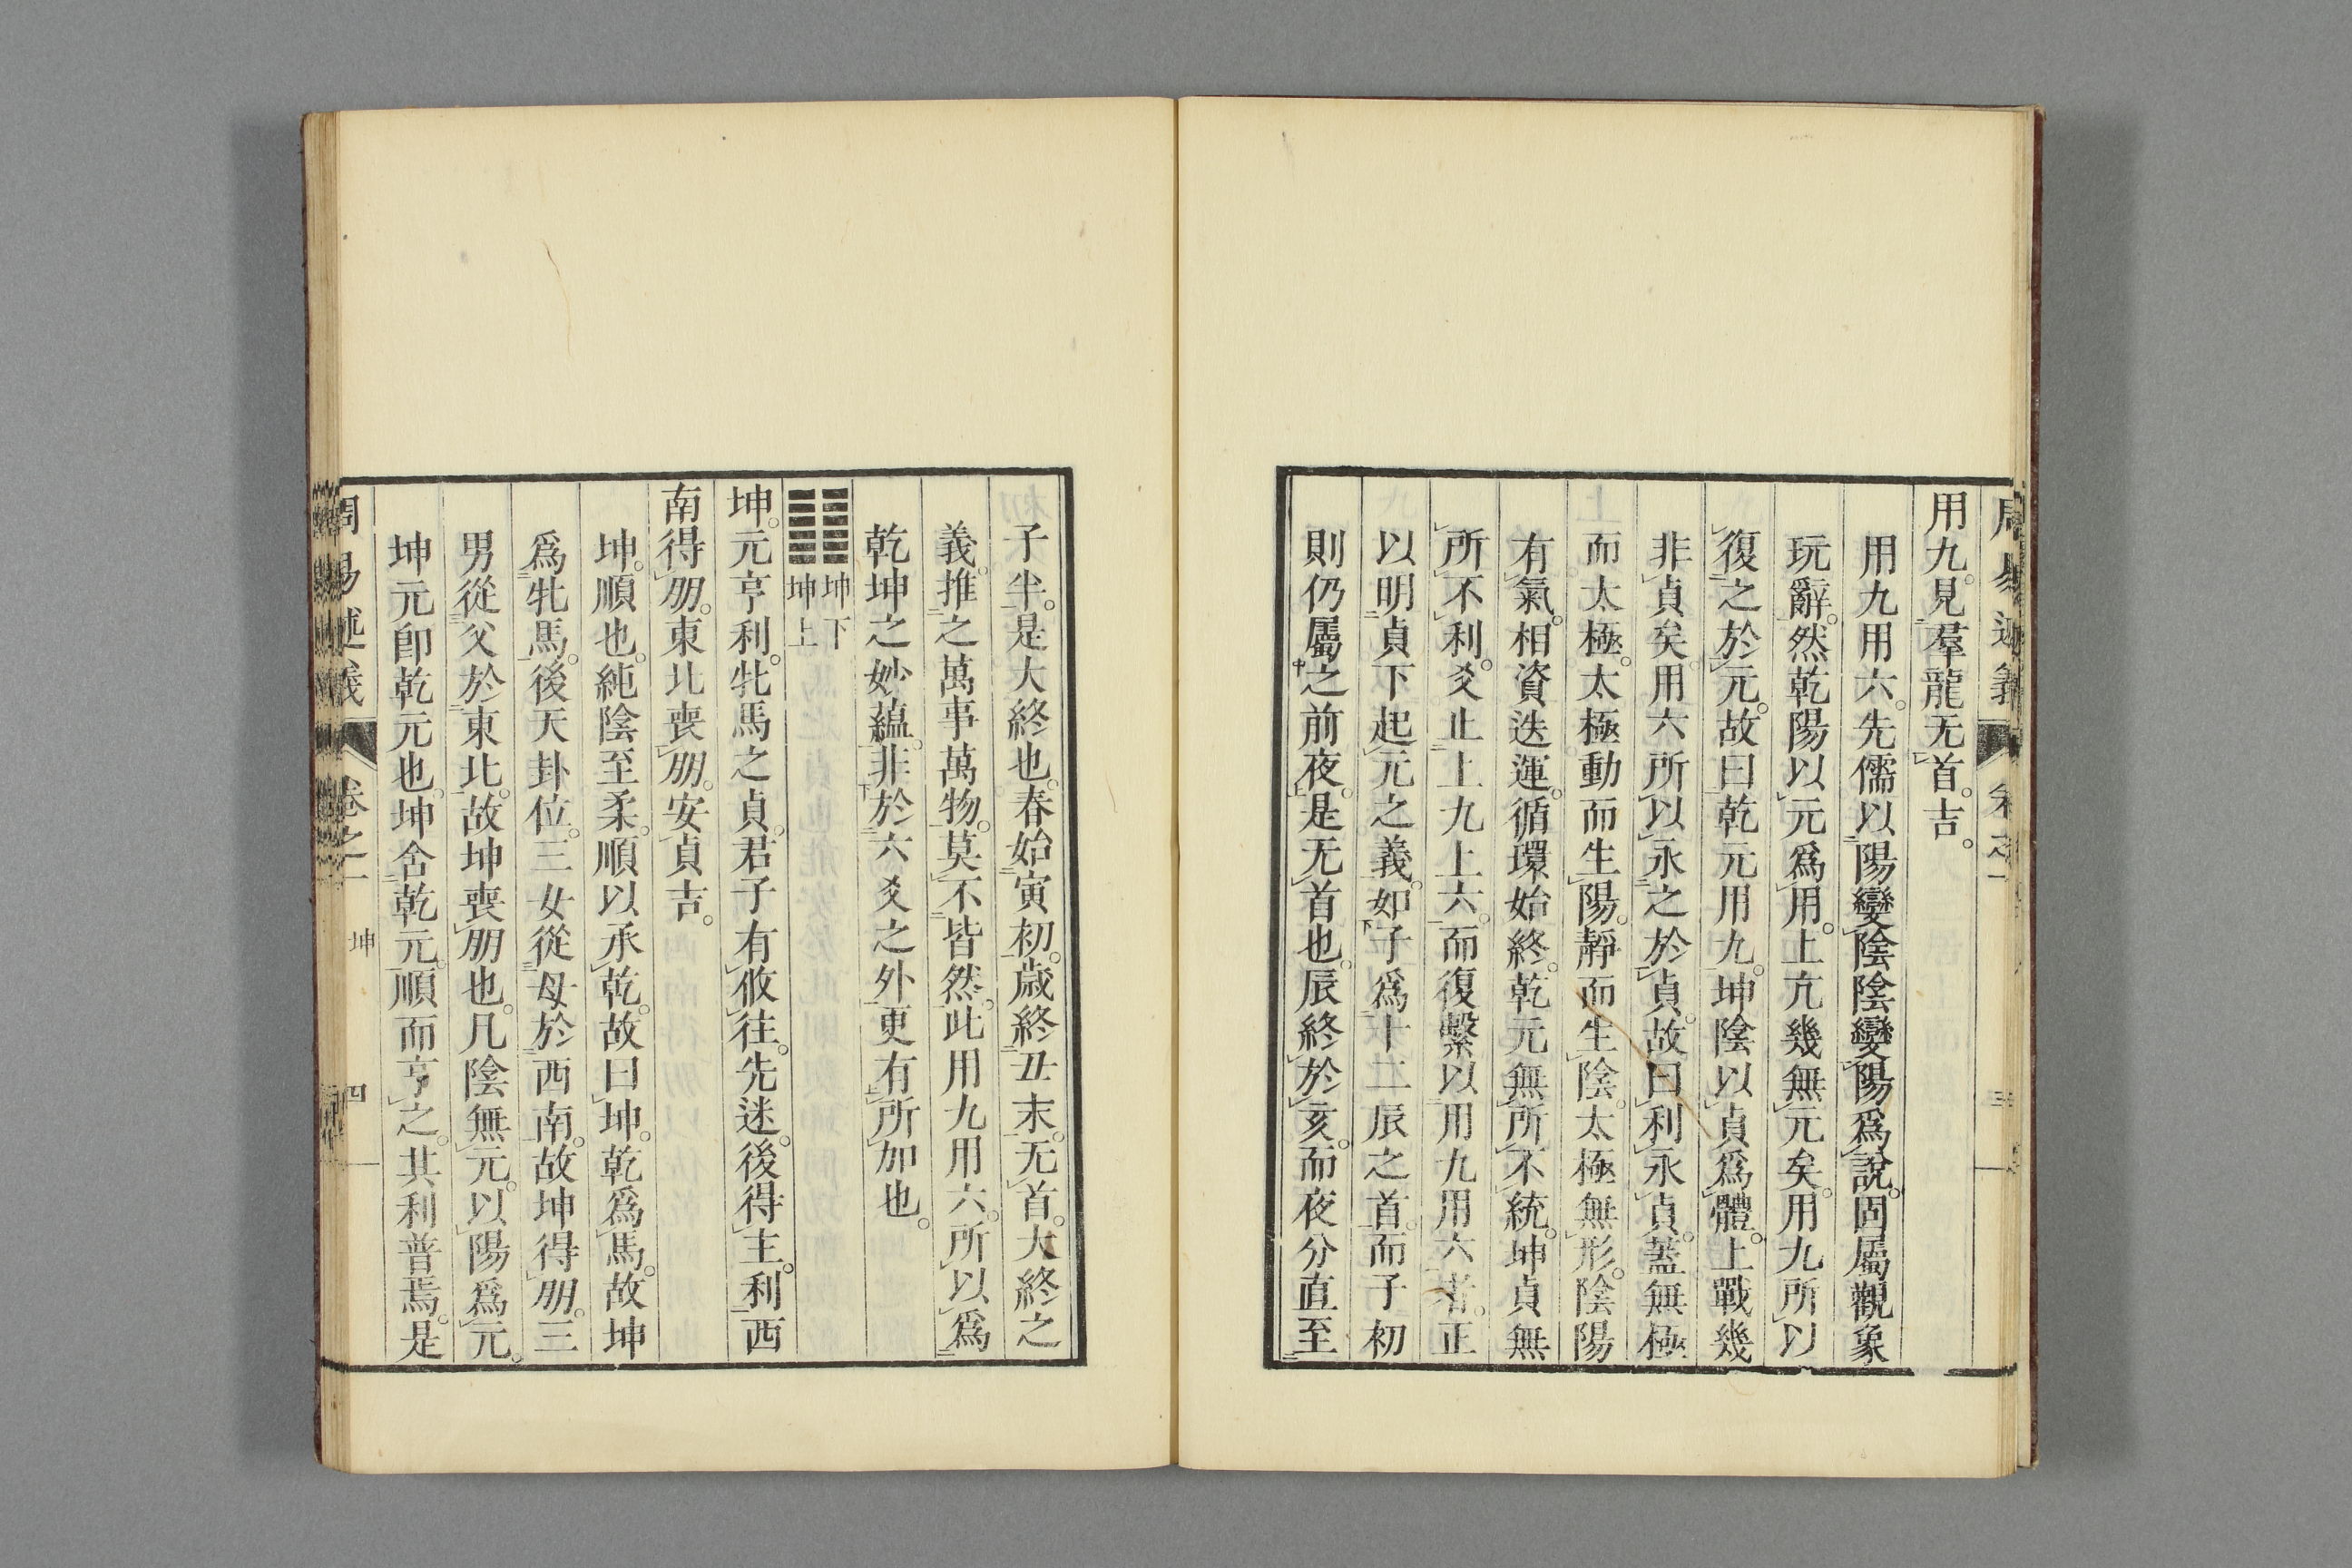 用九。見羣龍无首。吉。
用九用六。先儒以陽變陰陰變陽爲說。固屬觀象
玩辭。然乾陽以元爲用。上亢幾無元矣。用九所以
復之於元。故曰乾元用九。坤陰以貞爲體。上戰幾
非貞矣。用六所以永之於貞。故曰利永貞。蓋無極
而太極。太極動而生陽。靜而生陰。太極無形。陰陽
有氣。相資迭運。循環始終。乾元無所不統。坤貞無
所不利。爻止上九上六。而復繫以用九用六者。正
以明貞下起元之義。如子爲十二辰之首。而子初
則仍屬之前夜。是无首也。辰終於亥。而夜分直至
子半。是大終也。春始寅初。歲終丑末。无首。大終之
義。推之萬事萬物。莫不皆然。此用九用六。所以爲
乾坤之妙蘊。非於六爻之外更有所加也。
坤下
坤上
坤。元亨利。牝馬之貞。君子有攸往。先迷。後得主。利西
南得朋。東北喪朋。安貞吉。
坤。順也。純陰至柔。順以承乾。故曰坤。乾爲馬。故坤
爲牝馬。後天卦位。三女從母於西南。故坤得朋。三
男從父於東北。故坤喪朋也。凡陰無元。以陽爲元。
坤元卽乾元也。坤含乾元。順而亨之。其利普焉。是
周易述義 卷之一 坤 四